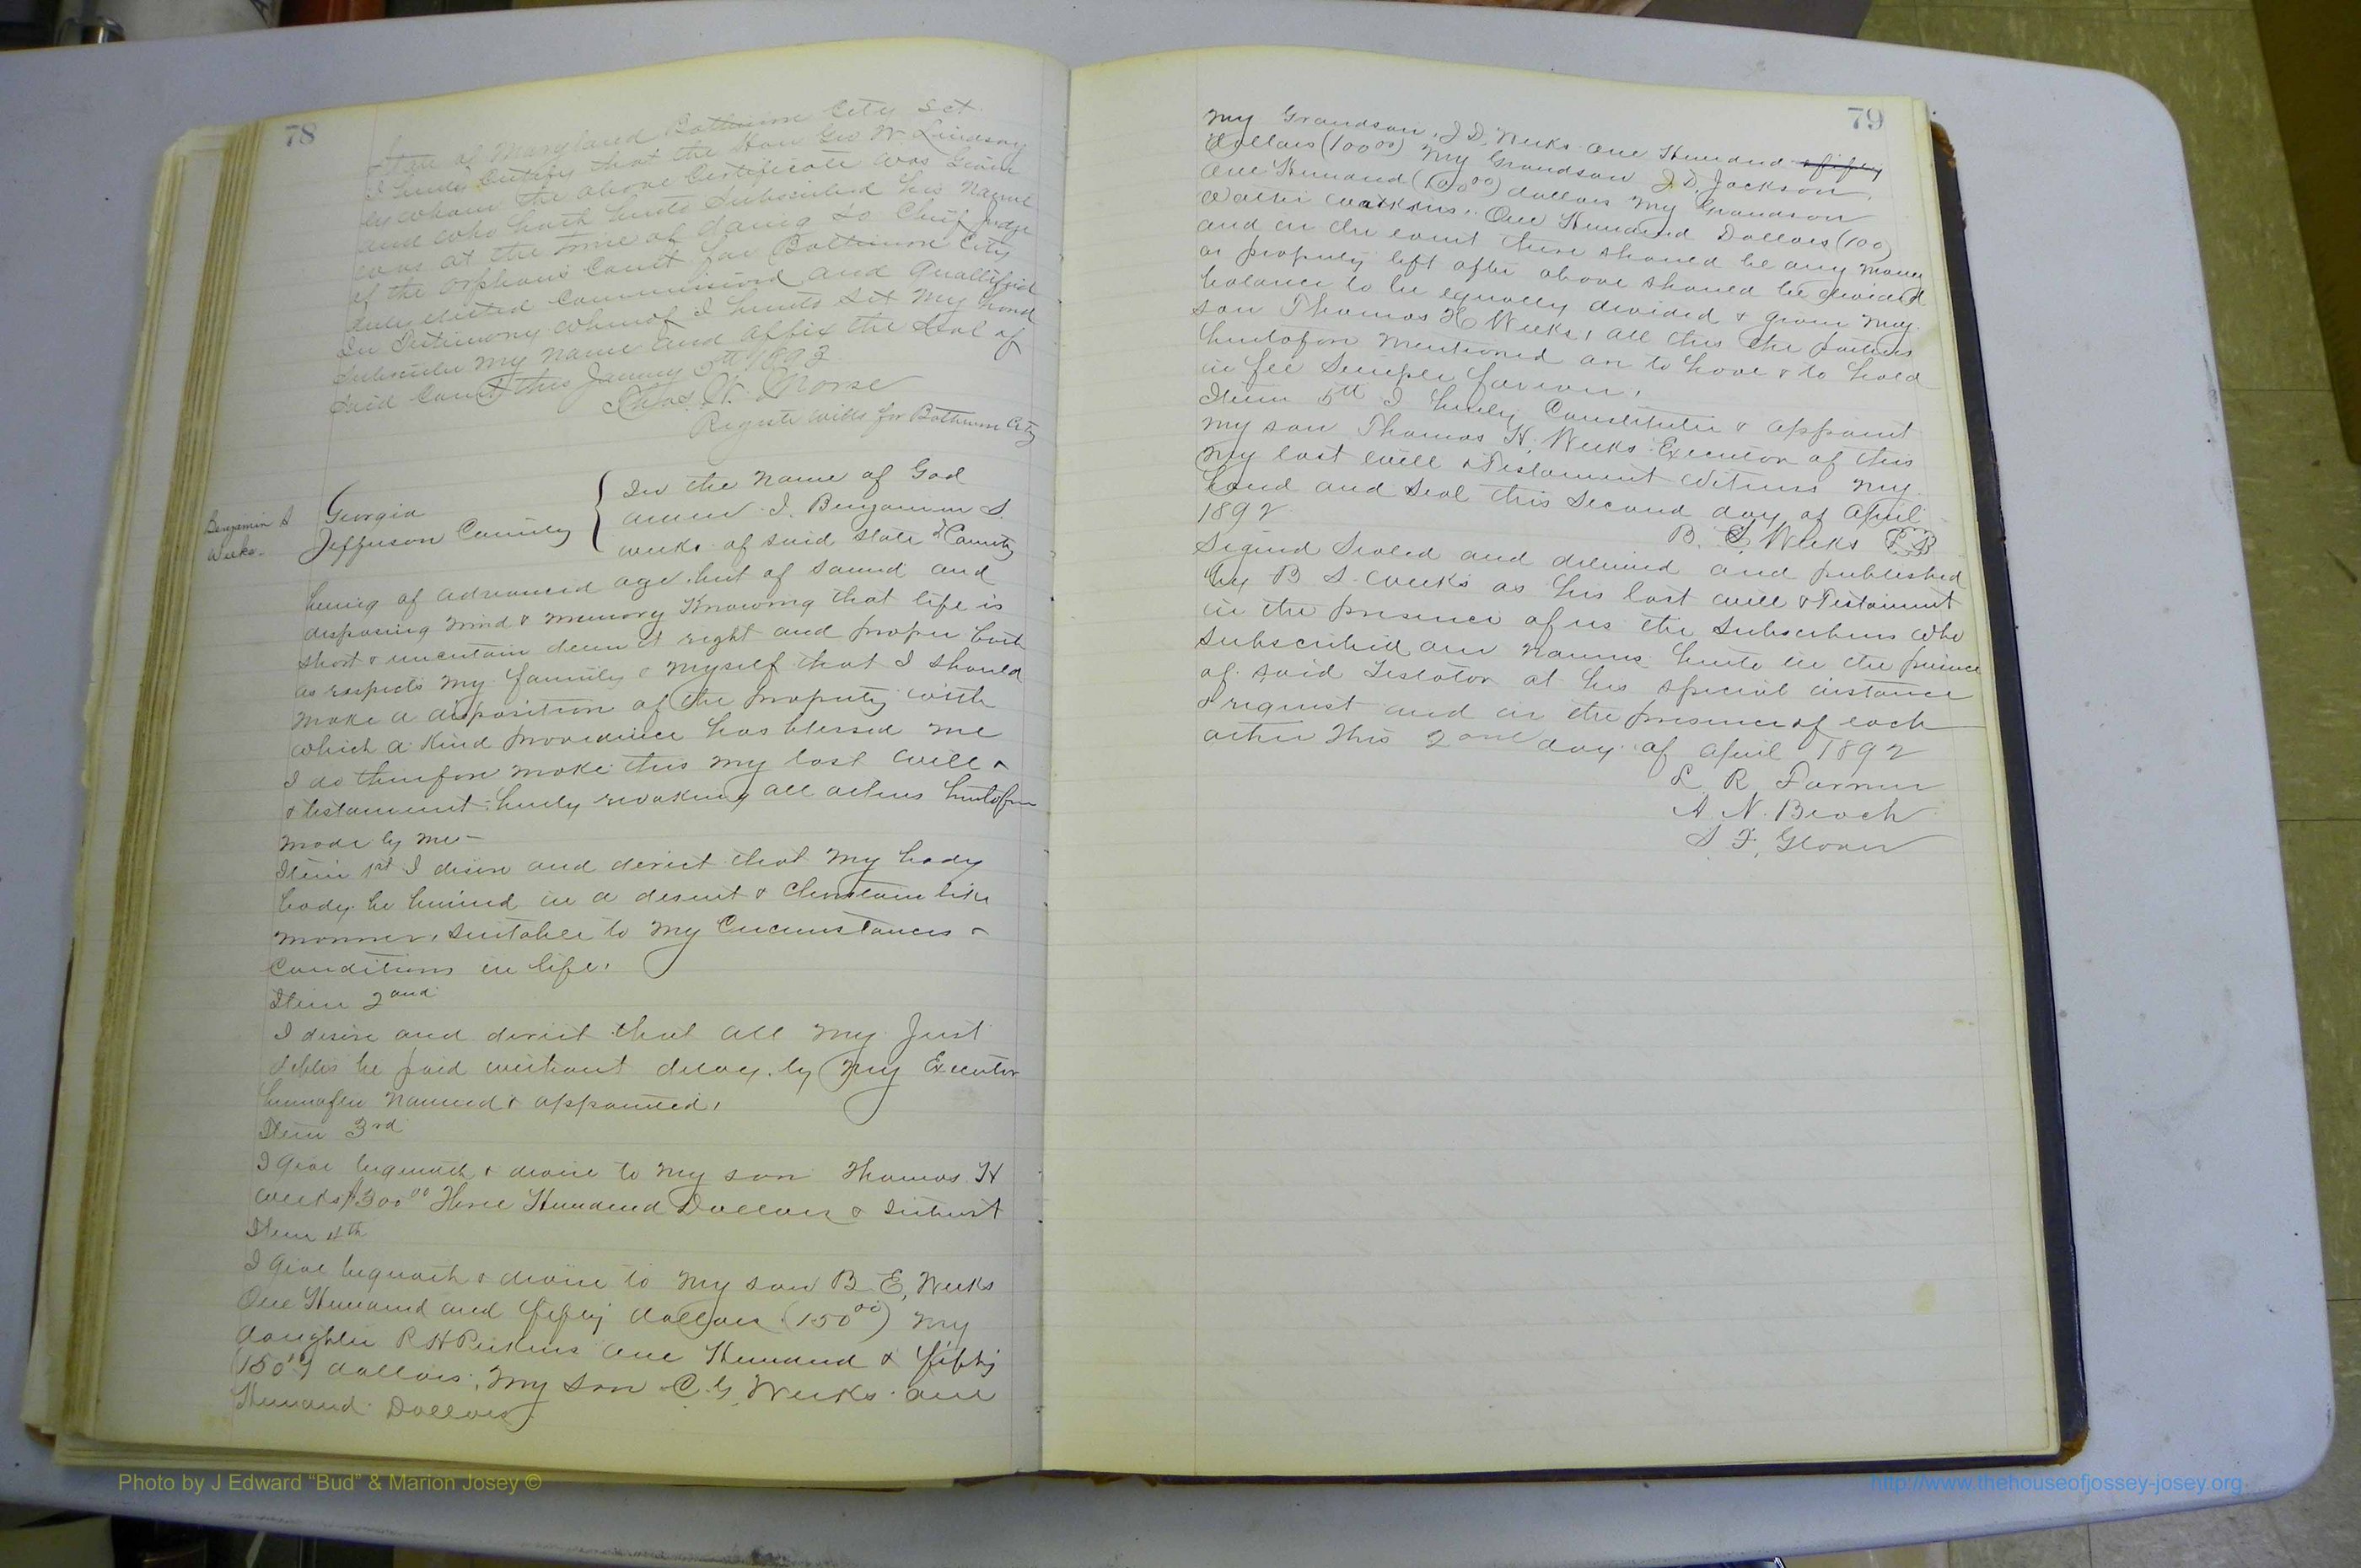 78
State of Maryland Baltimore City Sct.
I hereby Certify that the Hon Geo W. Lindsay
by whom the above Certificate was Given
and who hath hereto Subscribed his Name
was at the time of doing so Chief Judge
of the Orphans Court for Baltimore City
duly elected Commissiond and Quallified
In Testimony whereof I hereto Set My hand
Subscribe my name and affix the Seal of
said Court this January 5th 1893
Morse
Register Wills for Baltimore City
Benjamin S
Weeks
Georgia
Jefferson County
In the Name of God
amen I. Benjamin S.
weeks of said State & County
being of advanced age, but of sound and
disposing mind & memory Knowing that life is
short & uncertain deem it right and proper both
as respects my family & myself that I should
make a disposition of the property with
which a Kind providence has blessed me
I do therefore make this my last will &
& testament hereby revoking all others heretofore
made by me—
Item 1st I desire and derict that my body
body be buried in a desent & Christain like
manner, suitable to my Circumstances &
Conditions in life.
Item 2ond
I desire and derict that all my Just
debts be paid without delay, by my Executor
hereafter named & appointed,
Item 3rd
I give bequeath & devise to my son Thomas H
weeks $300 00 Three Hundred Dollars & Interest
Item 4th
I give bequeath & devise to my son B. E, Weeks
One Hundred and fifty dollars (150 00) My
daughter R H Perkins one Hundred & fifty
(150 00) dollars, my Son C. G, Weeks one
Hundred Dollars
79
my Grandson, J D, Weeks one Hundred & fifty
Dollars (100 00) My Grandson J. D. Jackson,
One Hundred (100 00) dollars My Grandson
Walter Watkins. One Hundred Dollars (100)
and in the event there should be any money
or property left after above should be devided
balance to be equally devided & given my
son Thomas H Weeks, all this the parties
heretofore mentioned are to have & to hold
in fee Simple forever.
Item 5th I hereby Constitute & appoint
my son Thomas H, Weeks Executor of this
my last will & Testament Witness my
hand and Seal this Second day of April
1892
B. S, Weeks
Signed Sealed and delivered and published
by B S. Weeks as his last will & Testament
in the presence of us the Subscribers who
subscribed our names hereto in the presence
of said Testator at his special instance
& request and in the presence of each
other this 2ond day of April 1892
L R Farmer
A. N. Beach
S F, Glover
Photo by J Edward “Bud” & Marion Josey ©
http://www.thehouseofjossey-josey.org